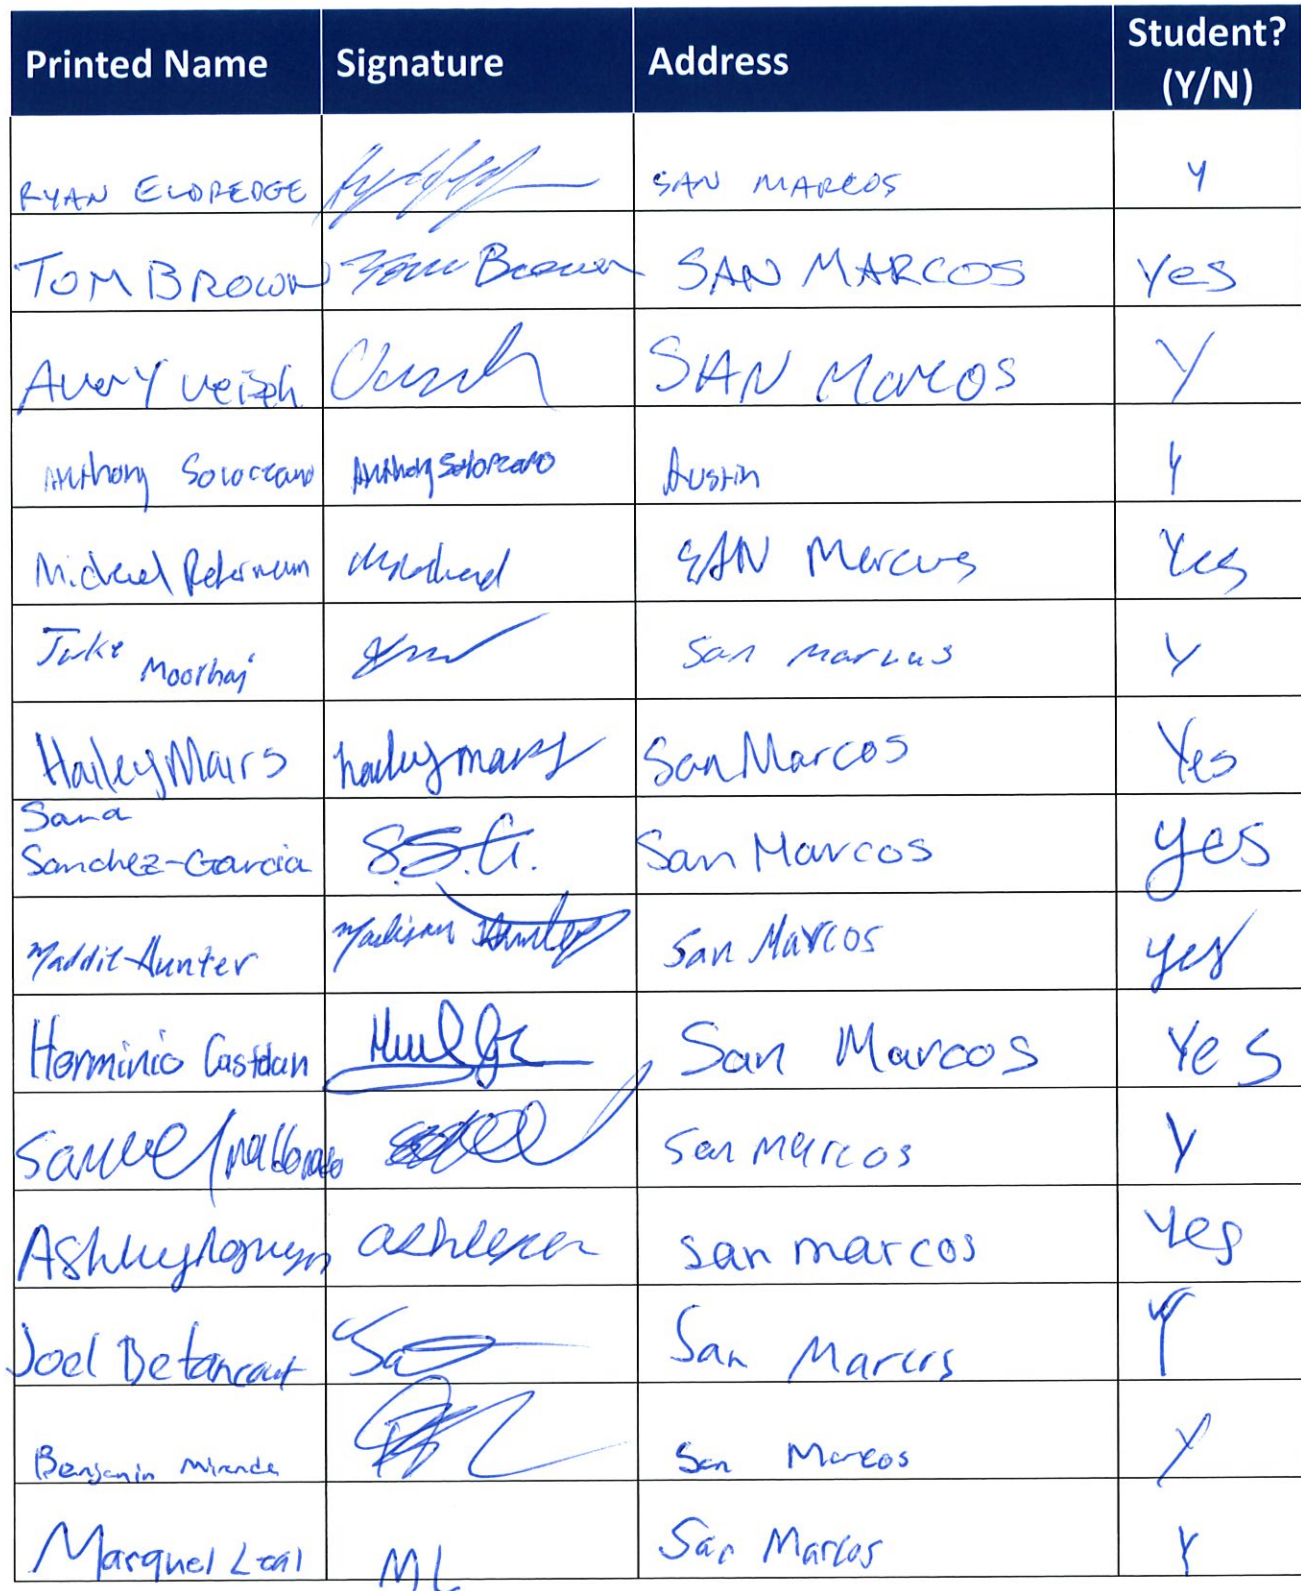 Printed Name Signature Address Student? (Y/N)
RYAN ELDREDGE SAN MARCOS Y
TOM BROWN Tom Brown SAN MARCOS Yes
Avery Veitch SAN Marcos Y
Anthony Solorzano Anthony Solorzano Austin Y
Michael SAN Marcus Yes
Jake San Marcus Y
Hailey Mairs hailey mairs San Marcos Yes
Sana
Sanchez-Garcia S.S.G. San Marcos yes
Maddie Hunter Madison Hunter San Marcos yes
Herminio San Marcos Yes
Samuel Maldonado San marcos Y
Ashley san marcos Yes
Joel Betancourt San Marcos Y
Benjamin Miranda San Marcos Y
Marquel Leal ML San Marcos Y